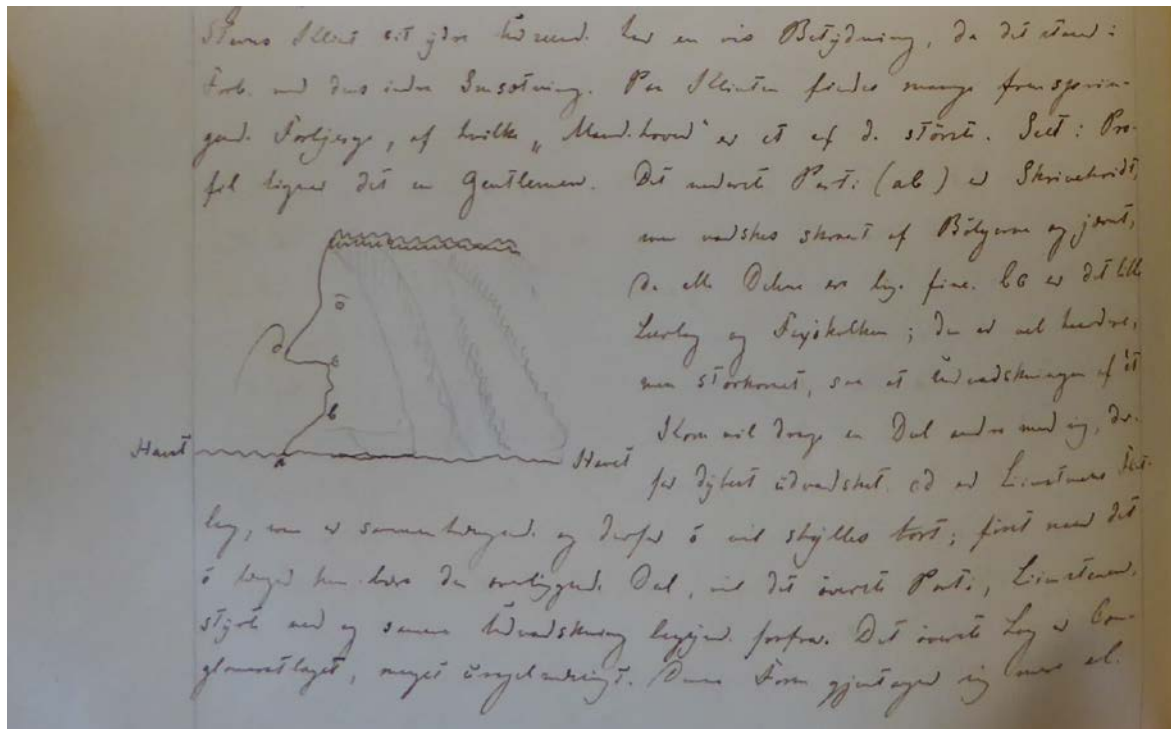 Stevns Klint sit ydre Udseend. har en vis Betydning, da det staar i
Forb. med dens indre Sammensætning. Paa Klinten findes mange fremsprin-
gend. Forbjerge, af hvilke „Mand.hoved“ er et af d. störste. Seet i Pro-
fil ligner det en Gentleman. Det nederste Parti (ab) er Skrivekridt,
som vadskes skraat af Bölgerne og jævnt,
da alle Delene ere lige fine. bc er det lille
Leerlag og Faxökalken; den er vel haardere,
men storkornet, saa at Udvadskningen af et
Korn vil drage en Del andre med sig, der-
for dybest udvadsket. cd er Limstenens Flint-
lag, som er sammenhængend. og derfor ö vil skylles bort; först naar det
ö længer kan bære den overliggend. Del, vil det överste Parti, Limstenen,
styrte ned og samme Udvadskning begynd. forfra. Det överste Lag er Con-
glomeratlaget, meget uregelmæssigt. Denne Form gjentager sig mere el.
d
c
b
a
Havet
Havet